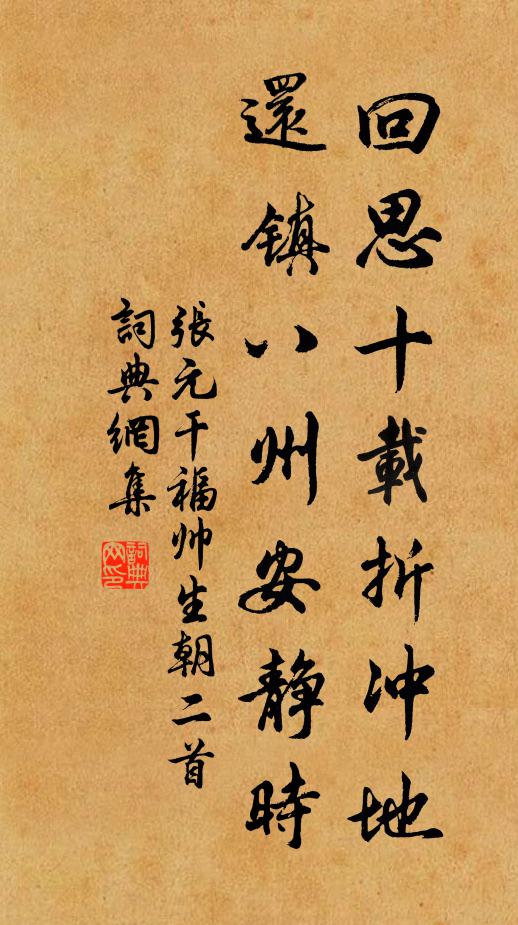 回思十載折冲地
還鎮八州安静時
張元干福帅生朝二首
詞典網集
詞典网印